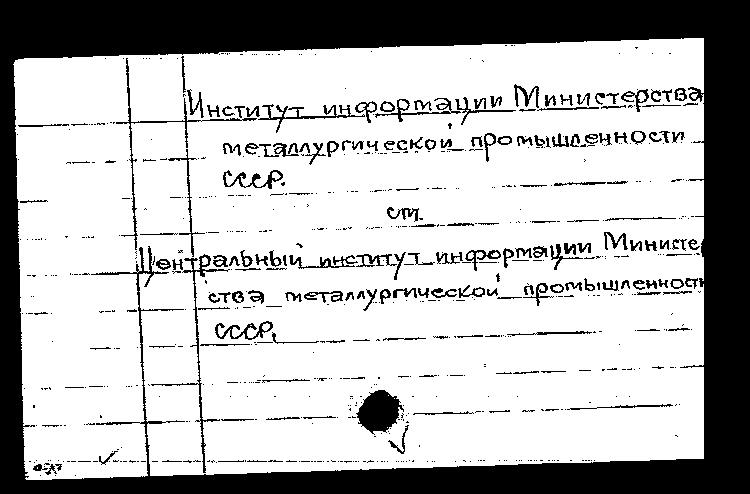 Институт информации Министерства
металлургической промышленности
СССР.
см.
Центральный институт информации Министер
ства металлургической промышленности
СССР.